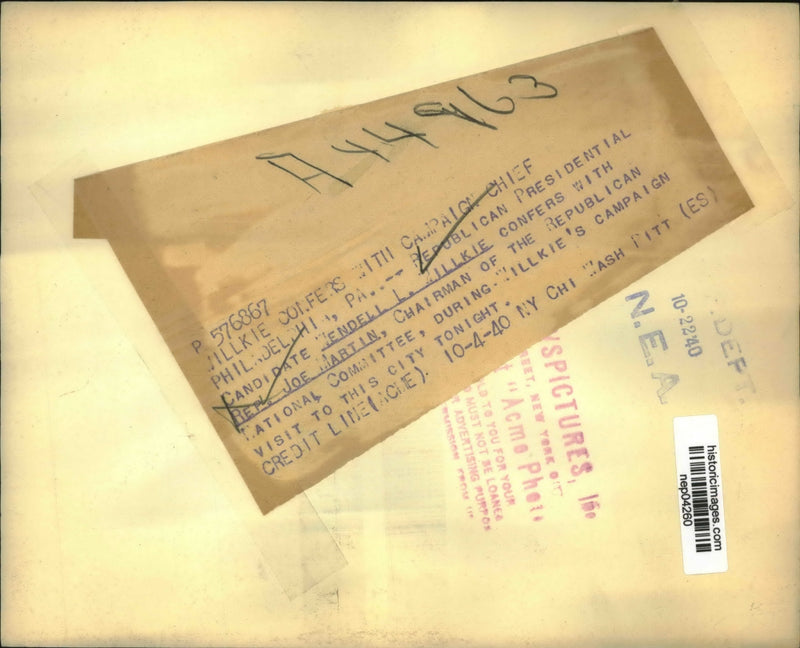 A44963
P 576867
WILLKIE CONFERS WITH CAMPAIGN CHIEF
PHILADELPHIA, PA.-- REPUBLICAN PRESIDENTIAL
CANDIDATE WENDELL L. WILLKIE CONFERS WITH
REP. JOE MARTIN, CHAIRMAN OF THE REPUBLICAN
NATIONAL COMMITTEE, DURING WILLKIE'S CAMPAIGN
VISIT TO THIS CITY TONIGHT.
CREDIT LINE(ACME). 10-4-40 NY CHI WASH PITT (ES)
SPICTURES, Inc
REET, NEW YORK CIT
"Acme Photo
LD TO YOU FOR YOUR
MUST NOT BE LOANED
ADVERTISING PURPOS
FROM
DEPT.
10-22-40
N.E.A.
historicimages.com
nep04260